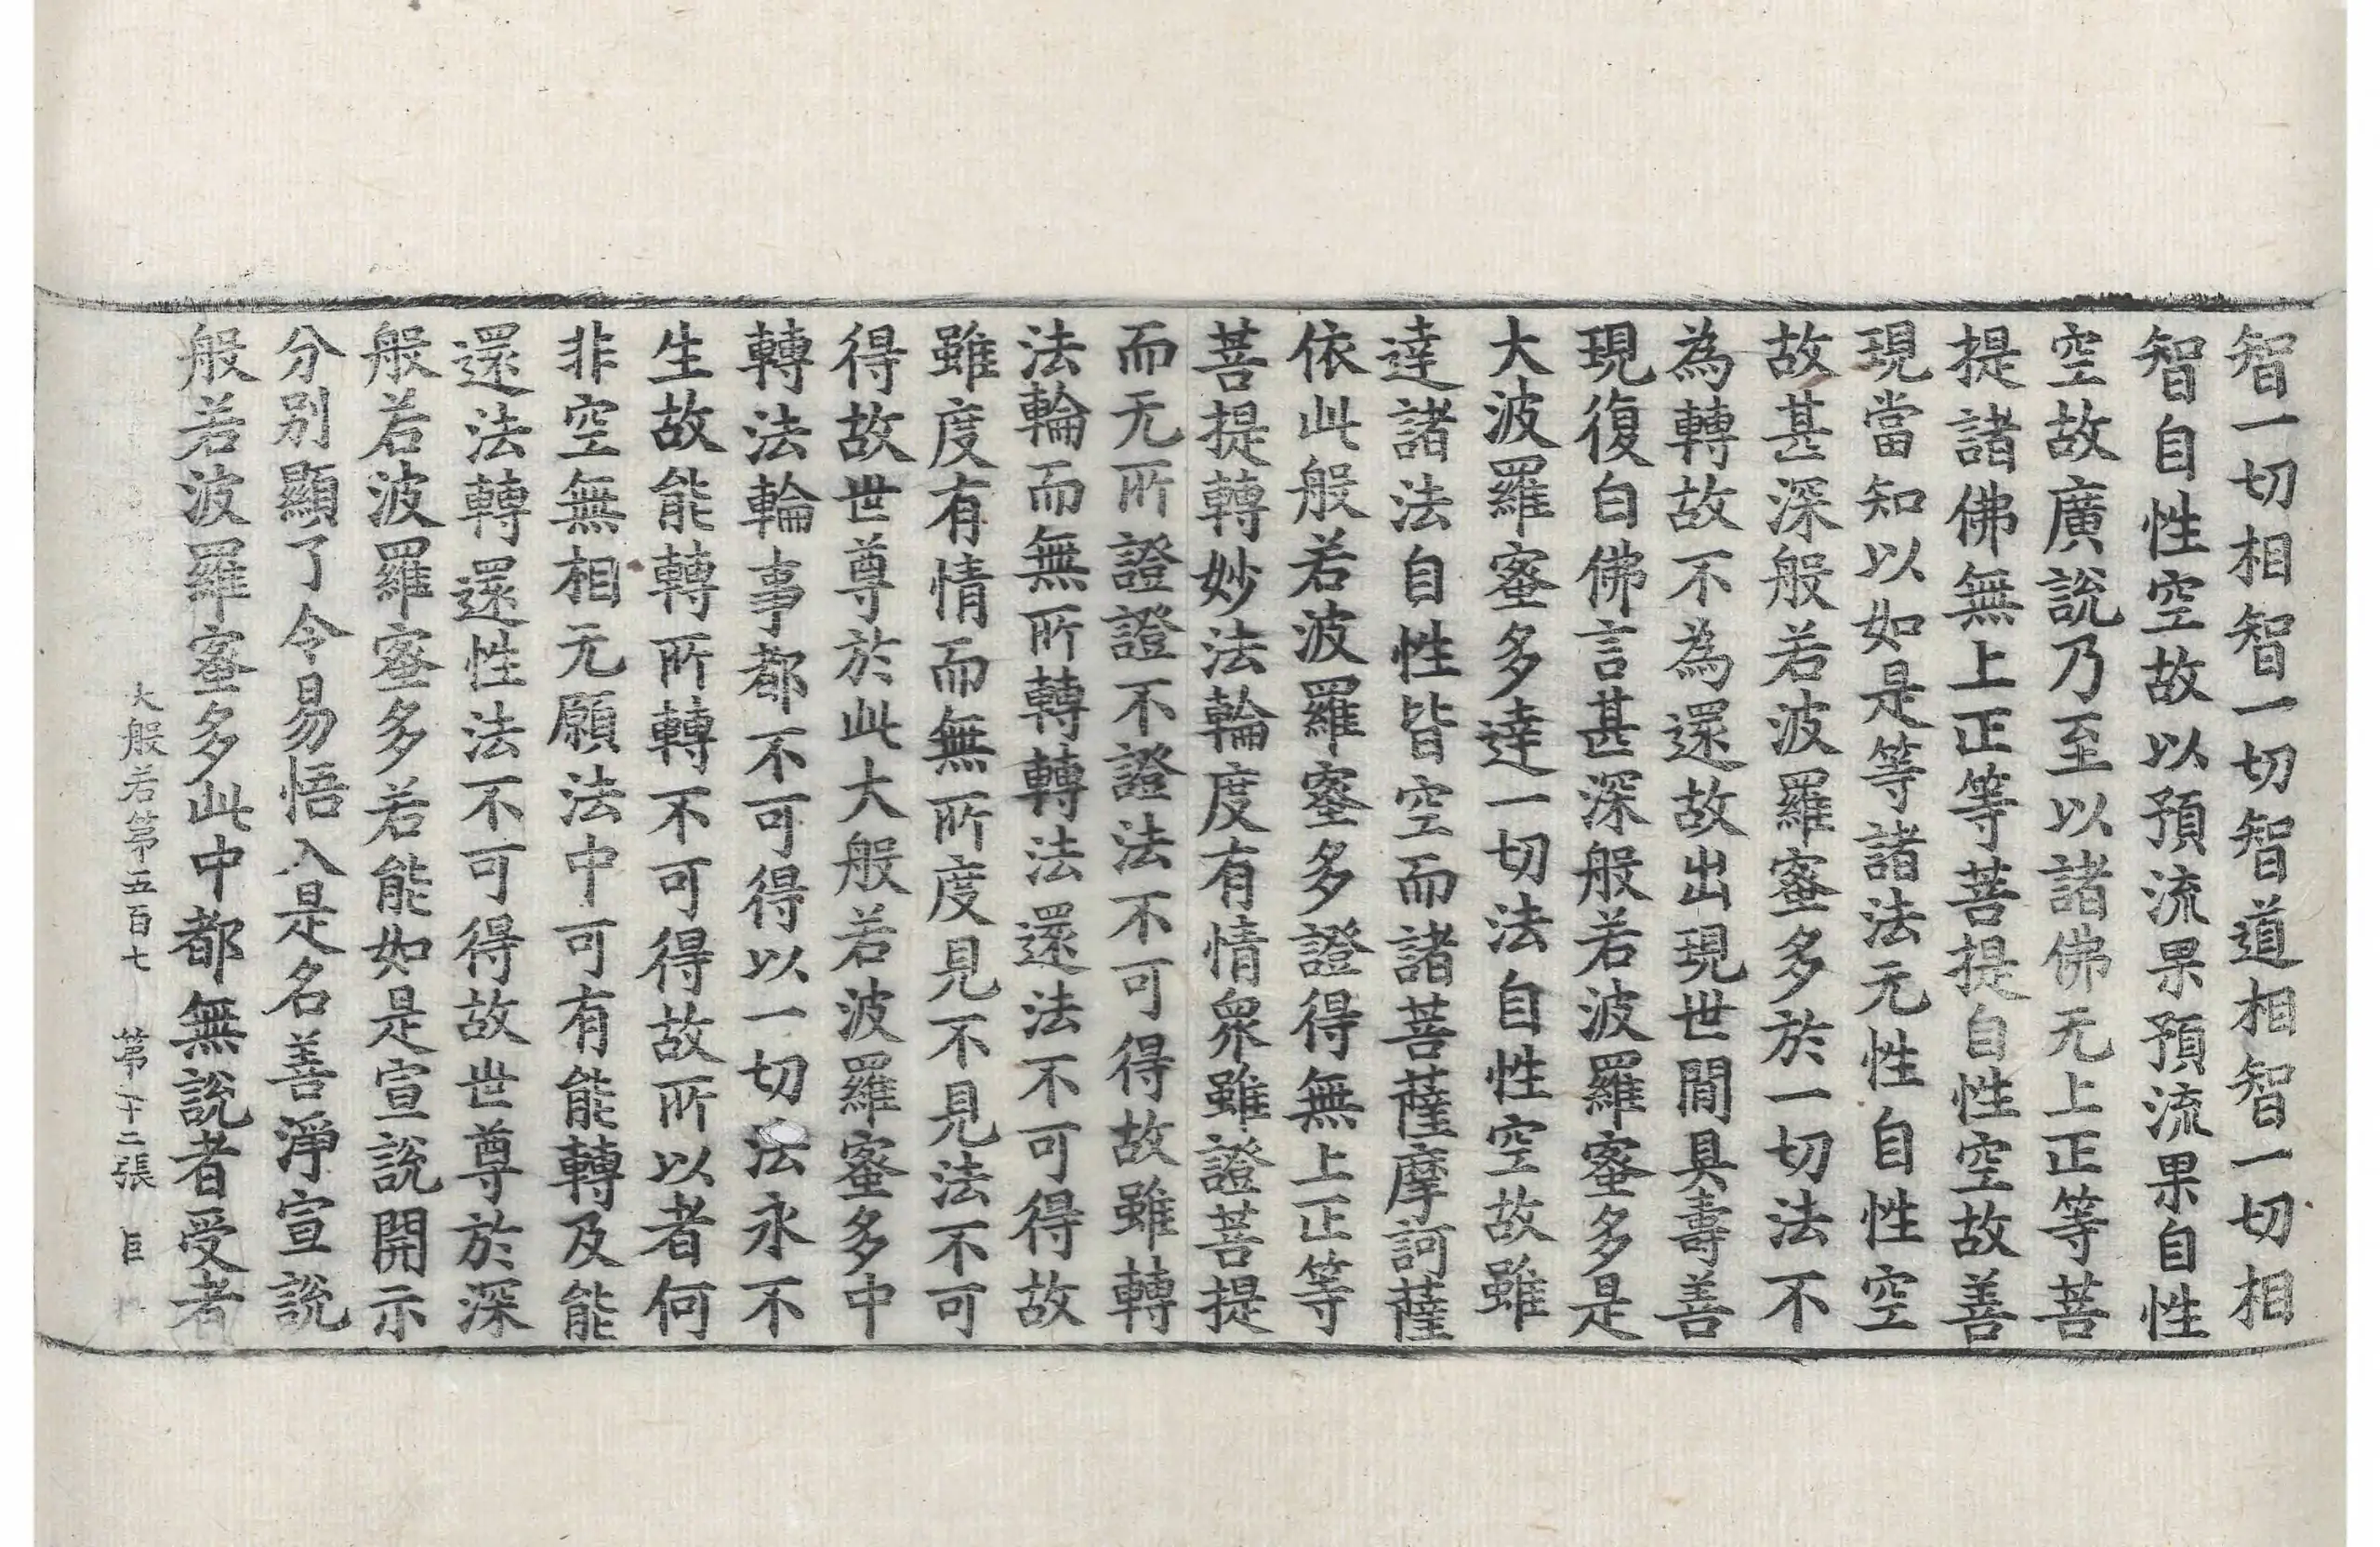 智一切相智智一切智道相智一切相
智自性空故以預流果預流果自性
空故廣說乃至以諸佛无上正等菩
提諸佛無上正等菩提自性空故善
現當知以如是等諸法无性自性空
故甚深般若波羅蜜多於一切法不
為轉故不為還故出現世間具壽善
現復白佛言甚深般若波羅蜜多是
大波羅蜜多達一切法自性空故雖
達諸法自性皆空而諸菩薩摩訶薩
依此般若波羅蜜多證得無上正等
菩提轉妙法輪度有情衆雖證菩提
而无所證證不證法不可得故雖轉
法輪而無所轉轉法還法不可得故
雖度有情而無所度見不見法不可
得故世尊於此大般若波羅蜜多中
轉法輪事都不可得以一切法永不
生故能轉所轉不可得故所以者何
非空無相无願法中可有能轉及能
還法轉還性法不可得故世尊於深
般若波羅蜜多若能如是宣說開示
分别顯了令易悟入是名善淨宣說
般若波羅蜜多此中都無說者受者
大般若第五百七 第十二張 臣